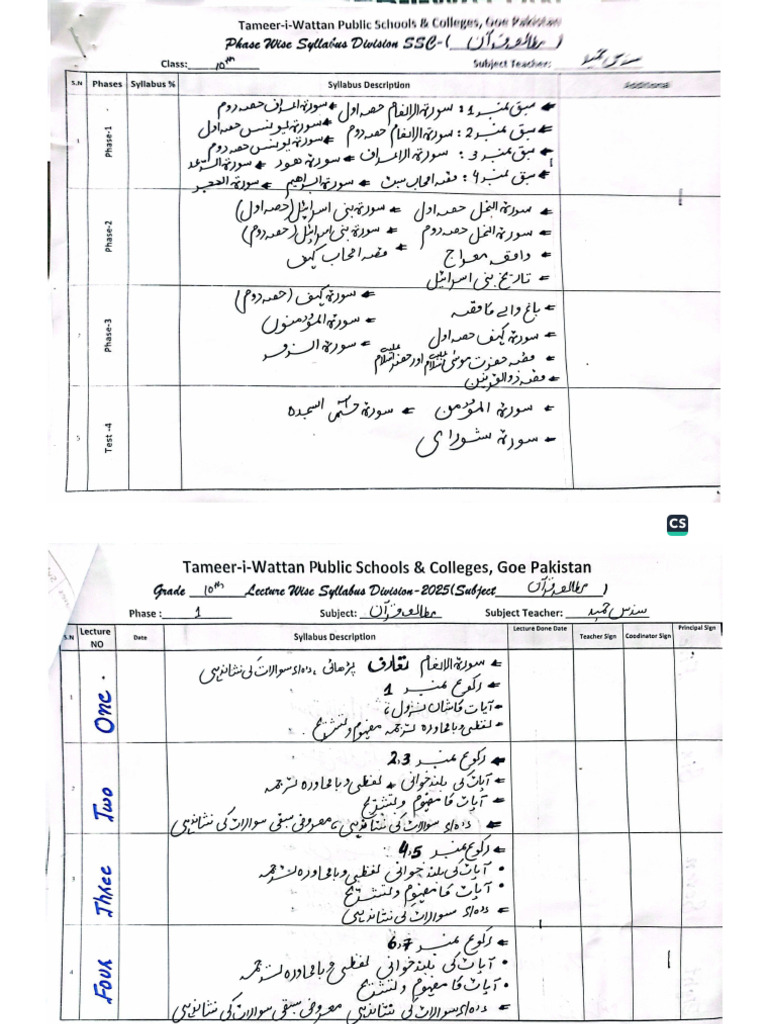 Tameer-i-Wattan Public Schools & Colleges, Goe Pakistan
Phase Wise Syllabus Division SSC-( مطالعہ قرآن )
Class: 10th Subject Teacher:
S.N Phases Syllabus % Syllabus Description Additional
Phase-1
← سبق نمبر 1: سورۃ الانعام حصہ اول ← سورۃ الاعراف حصہ دوم
← سبق نمبر 2: سورۃ الانعام حصہ دوم ← سورۃ یونس حصہ اول
← سورۃ یونس حصہ دوم
← سبق نمبر 3: سورۃ الاعراف ← سورۃ ھود ← سورۃ الرعد
← سبق نمبر 4: قصہ اصحاب سبت ← سورۃ ابراھیم ← سورۃ الحجر
Phase-2
← سورۃ النحل حصہ اول ← سورۃ بنی اسرائیل (حصہ اول)
← سورۃ النحل حصہ دوم ← سورۃ بنی اسرائیل (حصہ دوم)
← واقعہ معراج ← قصہ اصحاب کہف
← تاریخ بنی اسرائیل
Phase-3
← باغ والے کا قصہ ← سورۃ کہف (حصہ دوم)
← سورۃ کہف حصہ اول ← سورۃ المؤمنون
← قصہ حضرت موسیٰ علیہ السلام اور خضر علیہ السلام
← قصہ ذوالقرنین
Test -4
← سورۃ المؤمن ← سورۃ حٰم السجدہ
← سورۃ شوریٰ
CS
Tameer-i-Wattan Public Schools & Colleges, Goe Pakistan
Grade 10th Lecture Wise Syllabus Division-2025(Subject مطالعہ قرآن )
Phase : 1 Subject: مطالعہ قرآن Subject Teacher:
S.N Lecture NO Date Syllabus Description Lecture Done Date Teacher Sign Coodinator Sign Principal Sign
1 One
← سورۃ الانعام تعارف پڑھائی، سوالات کی نشاندہی
← رکوع نمبر 1
• آیات کا شان نزول،
• لفظی و بامحاورہ ترجمہ مفہوم و تشریح
2 Two
← رکوع نمبر 2,3
← آیات کی بلند خوانی ← لفظی و بامحاورہ ترجمہ
← آیات کا مفہوم و تشریح
← سوالات کی نشاندہی، معروضی مشقی سوالات کی نشاندہی
3 Three
← رکوع نمبر 4,5
• آیات کی بلند خوانی لفظی و بامحاورہ ترجمہ
• آیات کا مفہوم و تشریح
← سوالات کی نشاندہی
4 Four
← رکوع نمبر 6,7
• آیات کی بلند خوانی لفظی و بامحاورہ ترجمہ
• آیات کا مفہوم و تشریح
← سوالات کی نشاندہی معروضی مشقی سوالات کی نشاندہی